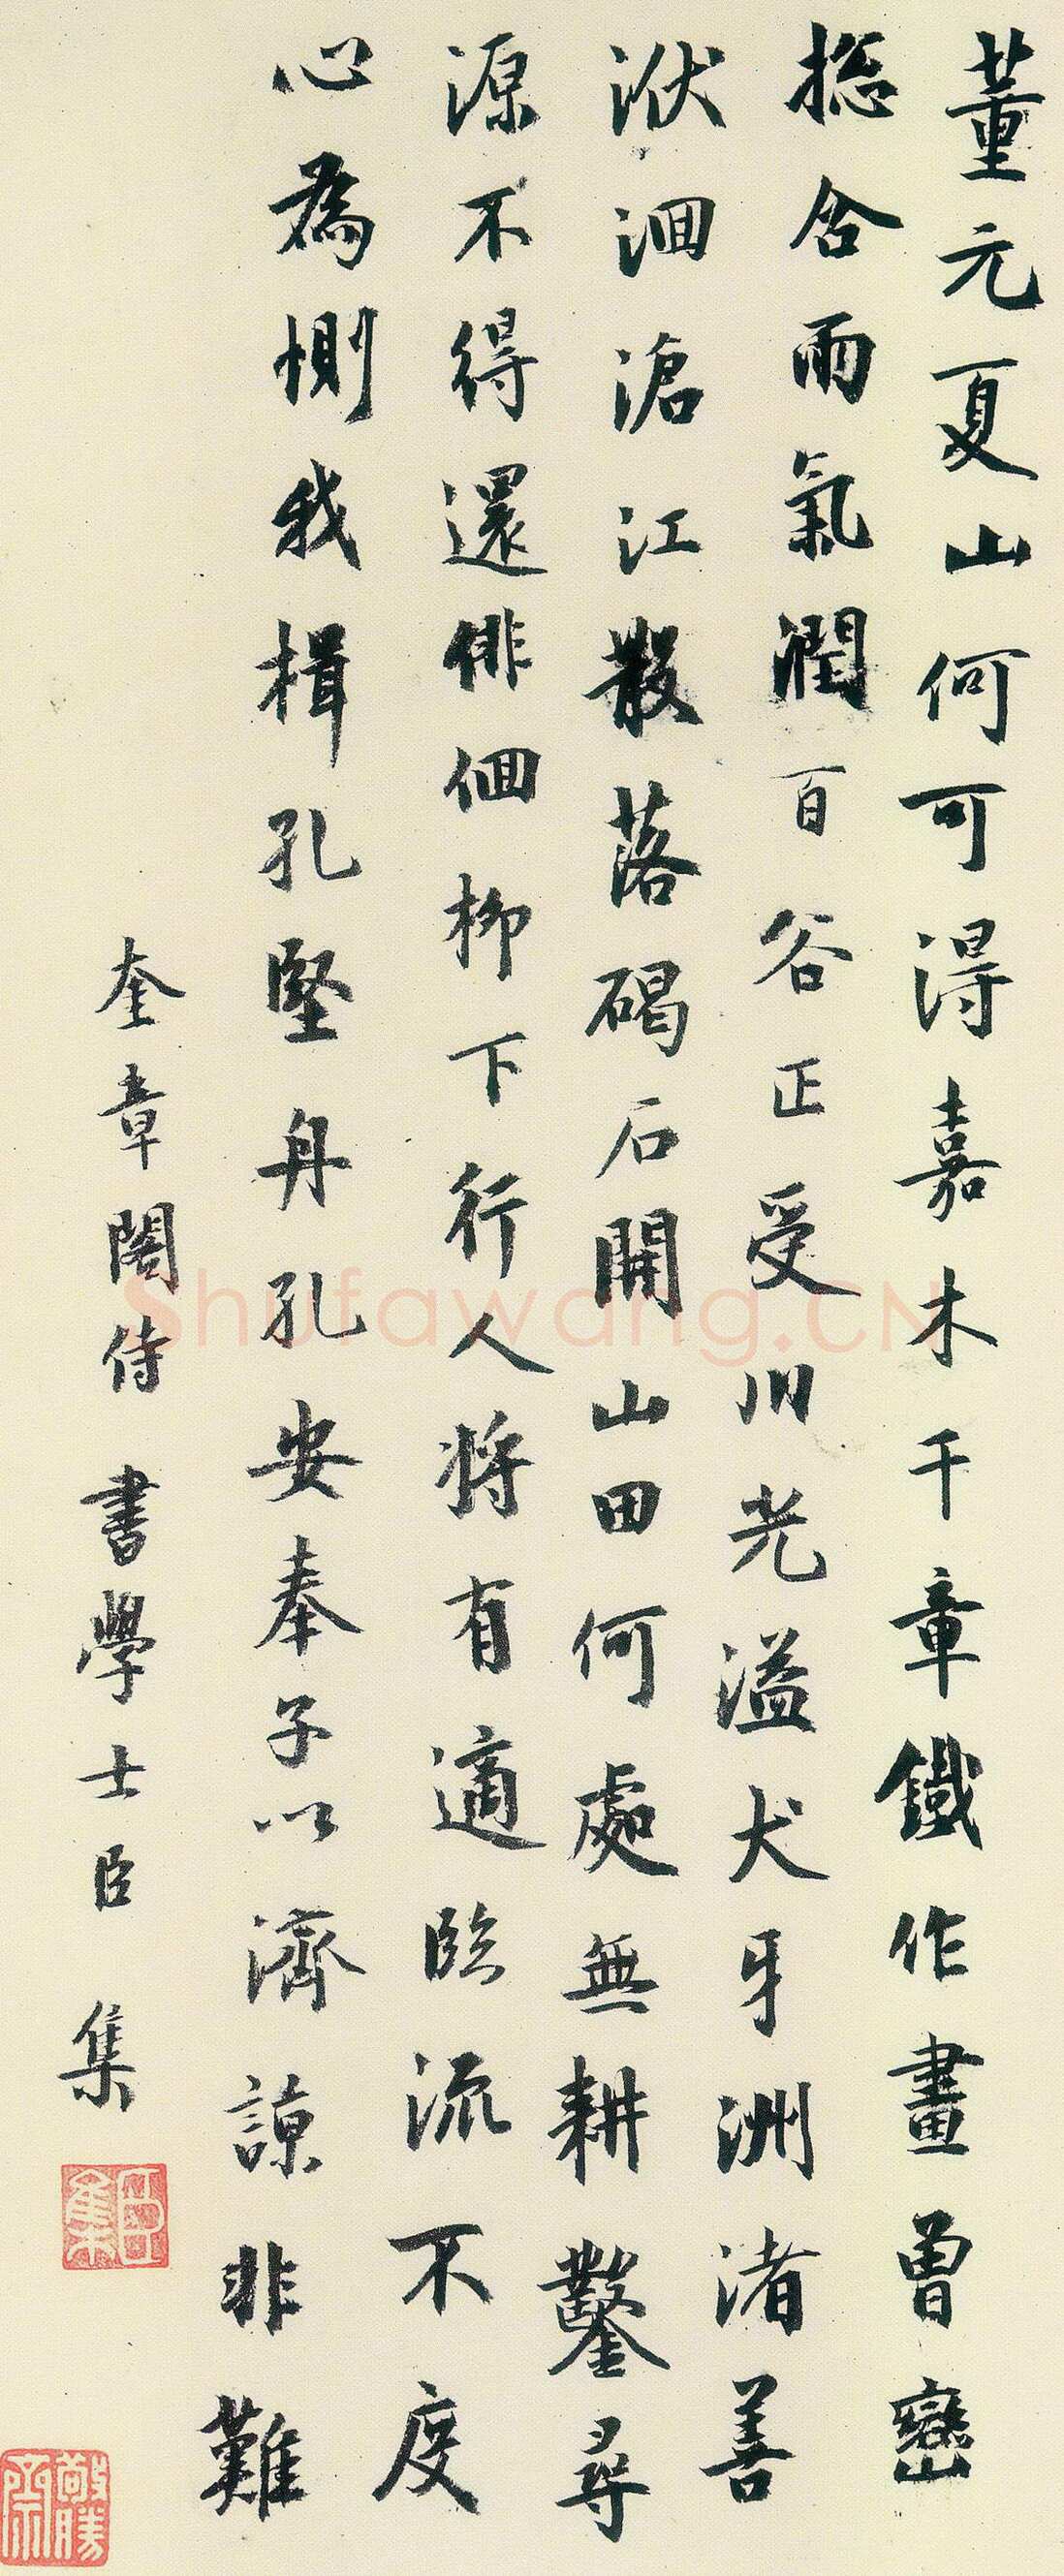 董元夏山何可得嘉木千章鐵作畫曾巒
捴含雨氣潤百谷正受川光溢犬牙洲渚善
洑洄滄江散落碣石開山田何處無耕鑿尋
源不得還俳佪柳下行人將有適臨流不度
心為惻我揖孔堅舟孔安奉子以濟諒非難
奎章閣侍書學士臣集
臣集
Shufawang.CN